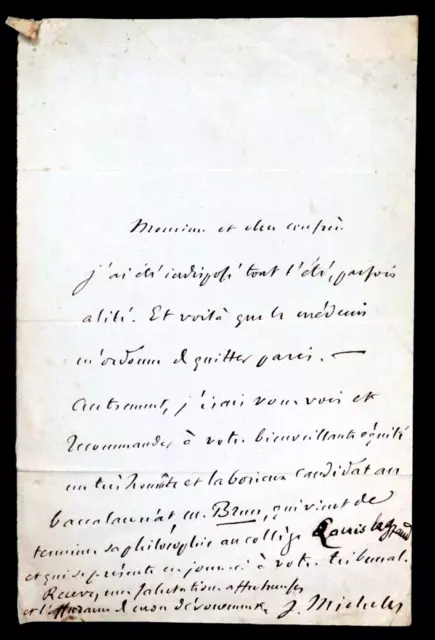 Monsieur et cher confrère
j'ai été indisposé tout l'été, parfois
alité. Et voilà que le médecin
m'ordonne de quitter paris. —
autrement, j'irais vous voir et
recommander à votre bienveillante équité
un très honnête et laborieux candidat au
baccalauréat m. Brun, qui vient de
terminer sa philosophie au collège Louis legrand
et qui se présente en ce jour à votre tribunal.
Recevez, mes salutations affectueuses
et l'assurance de mon dévouement
J. Michelet